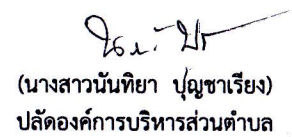 (นางสาวนันทิยา ปุญชาเรียง)
ปลัดองค์การบริหารส่วนตำบล